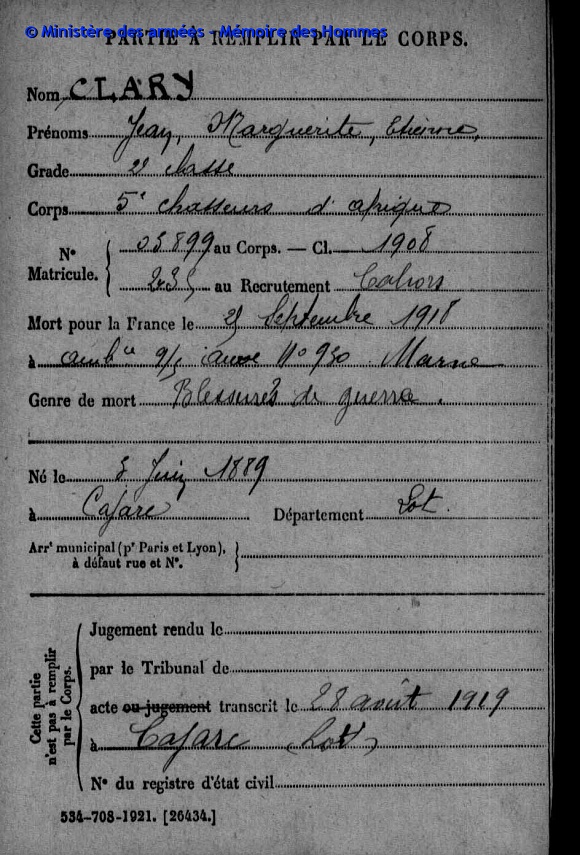 © Ministère des armées - Mémoire des Hommes
PARTIE À REMPLIR PAR LE CORPS.
Nom CLARY
Prénoms Jean, Marguerite, Etienne,
Grade 2e classe
Corps 5e chasseurs d'afrique
N° Matricule. 05899 au Corps. — Cl. 1908
au Recrutement Cahors
Mort pour la France le Septembre 1918
à ambce Marne
Genre de mort Blessures de guerre.
Né le Juin 1889
à Cajarc Département Lot.
Arrt municipal (pr Paris et Lyon),
à défaut rue et N°.
Cette partie n'est pas à remplir par le Corps.
Jugement rendu le
par le Tribunal de
acte ou jugement transcrit le 28 août 1919
à Cajarc (Lot)
N° du registre d'état civil
534-708-1921. [26434.]